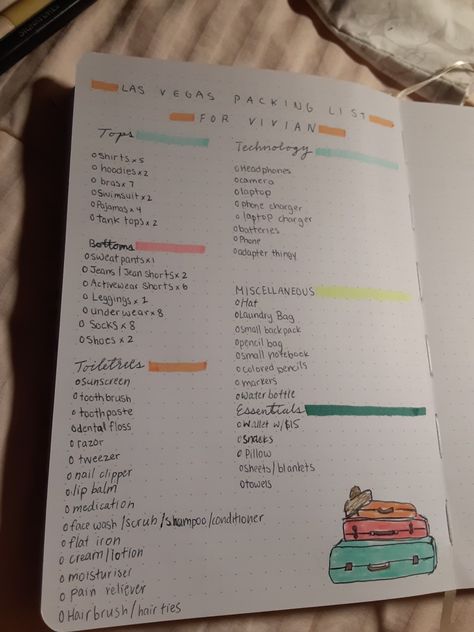 LAS VEGAS PACKING LIST
FOR VIVIAN
Tops
o shirts x 5
o hoodies x 2
o bras x 7
o Swimsuit x 2
o Pajamas x 4
o tank tops x 2
Bottoms
o sweatpants x 1
o Jeans / Jean shorts x 2
o Activewear shorts x 6
o Leggings x 1
o underwear x 8
o Socks x 8
o Shoes x 2
Toiletries
o sunscreen
o toothbrush
o toothpaste
o dental floss
o razor
o tweezer
o nail clipper
o lip balm
o medication
o face wash / scrub / shampoo / conditioner
o flat iron
o cream / lotion
o moisturiser
o pain reliever
o Hairbrush / hair ties
Technology
o Headphones
o camera
o laptop
o phone charger
o laptop charger
o batteries
o Phone
o adapter thingy
MISCELLANEOUS
o Hat
o Laundry Bag
o small backpack
o pencil bag
o small notebook
o colored pencils
o markers
o water bottle
Essentials
o Wallet w/ $15
o snacks
o Pillow
o sheets / blankets
o towels